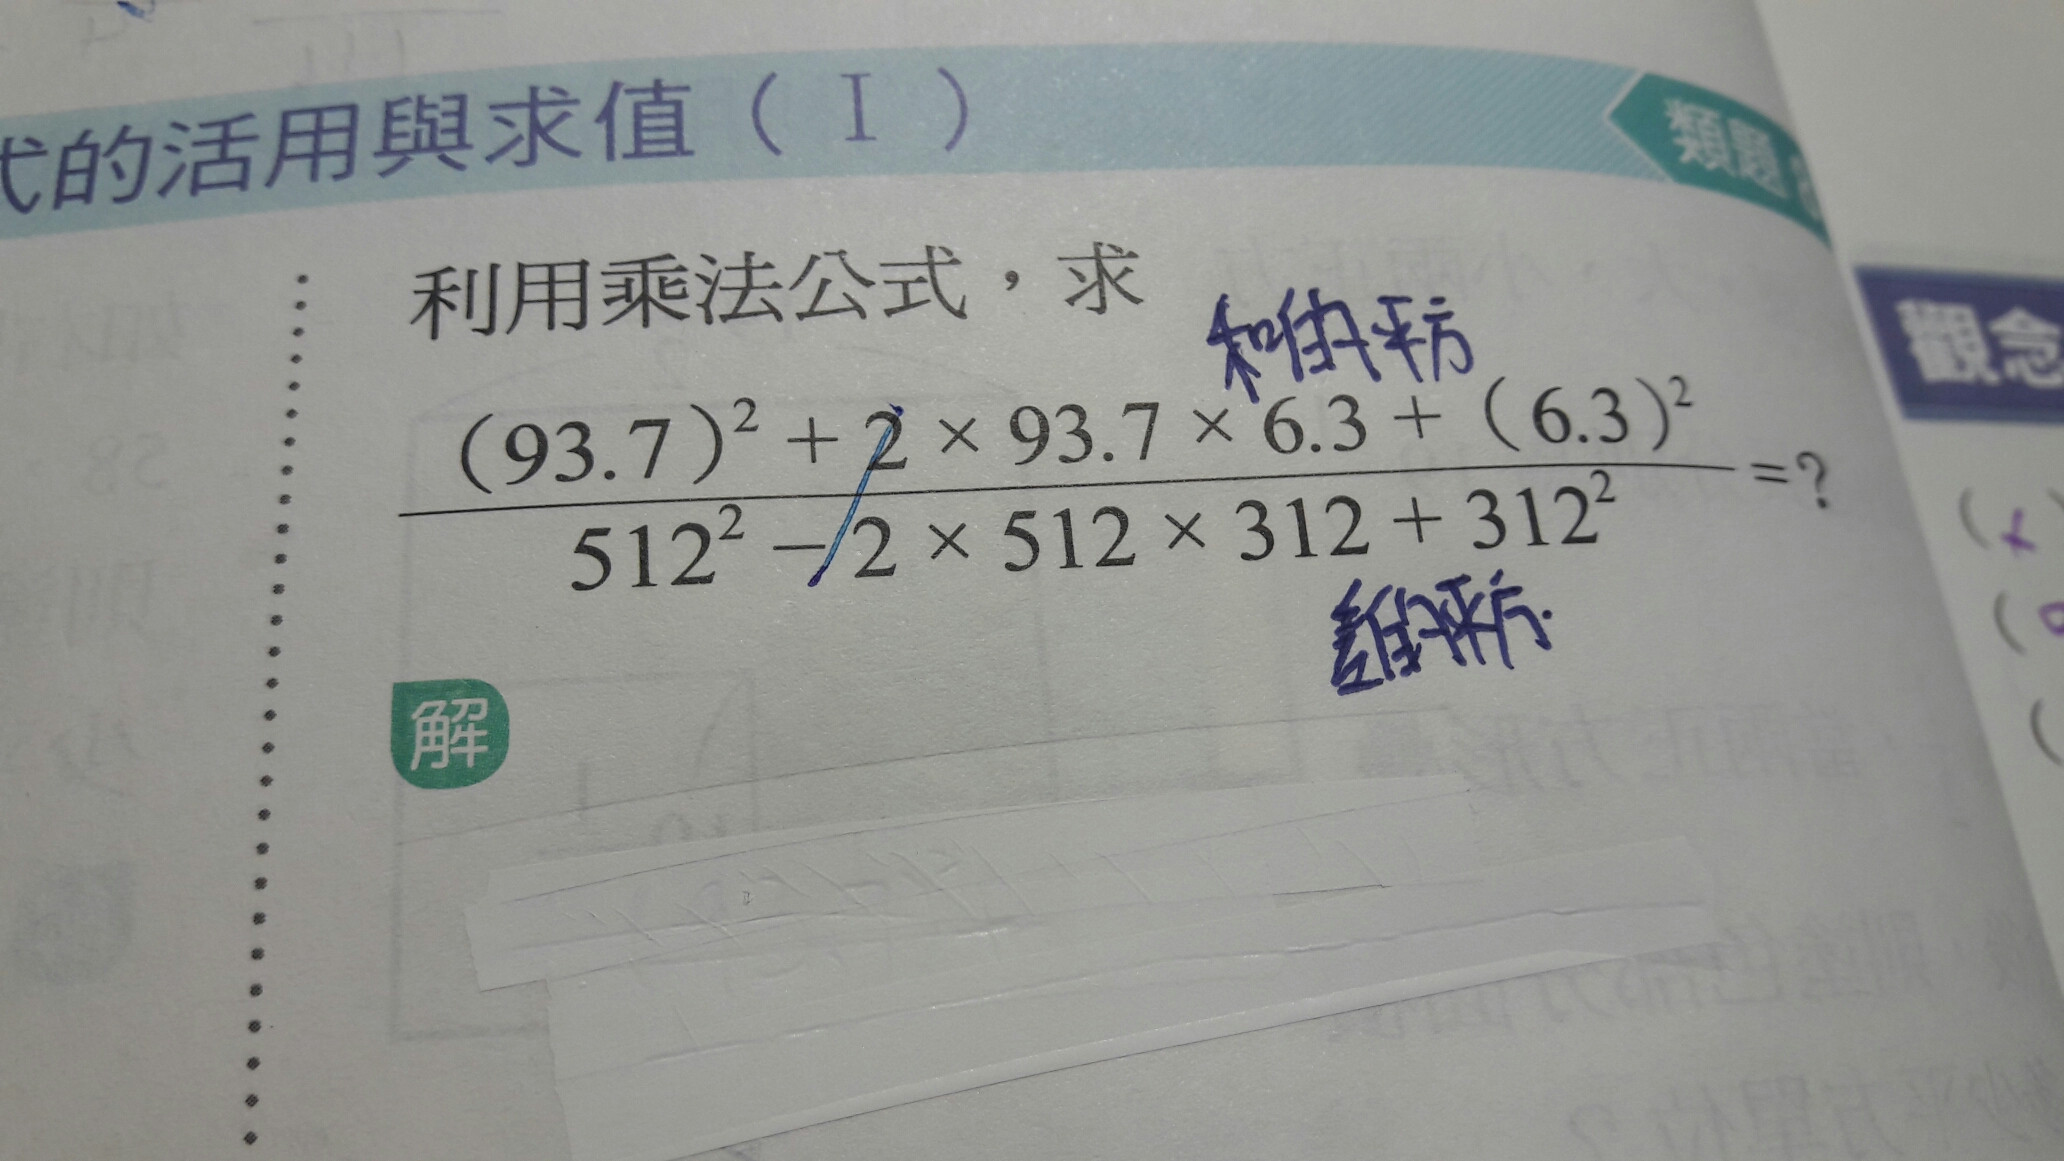 式的活用與求值(I)
類題
利用乘法公式,求
和的平方
(93.7)² + 2 × 93.7 × 6.3 + (6.3)²
=?
512² − 2 × 512 × 312 + 312²
差的平方
解
觀念